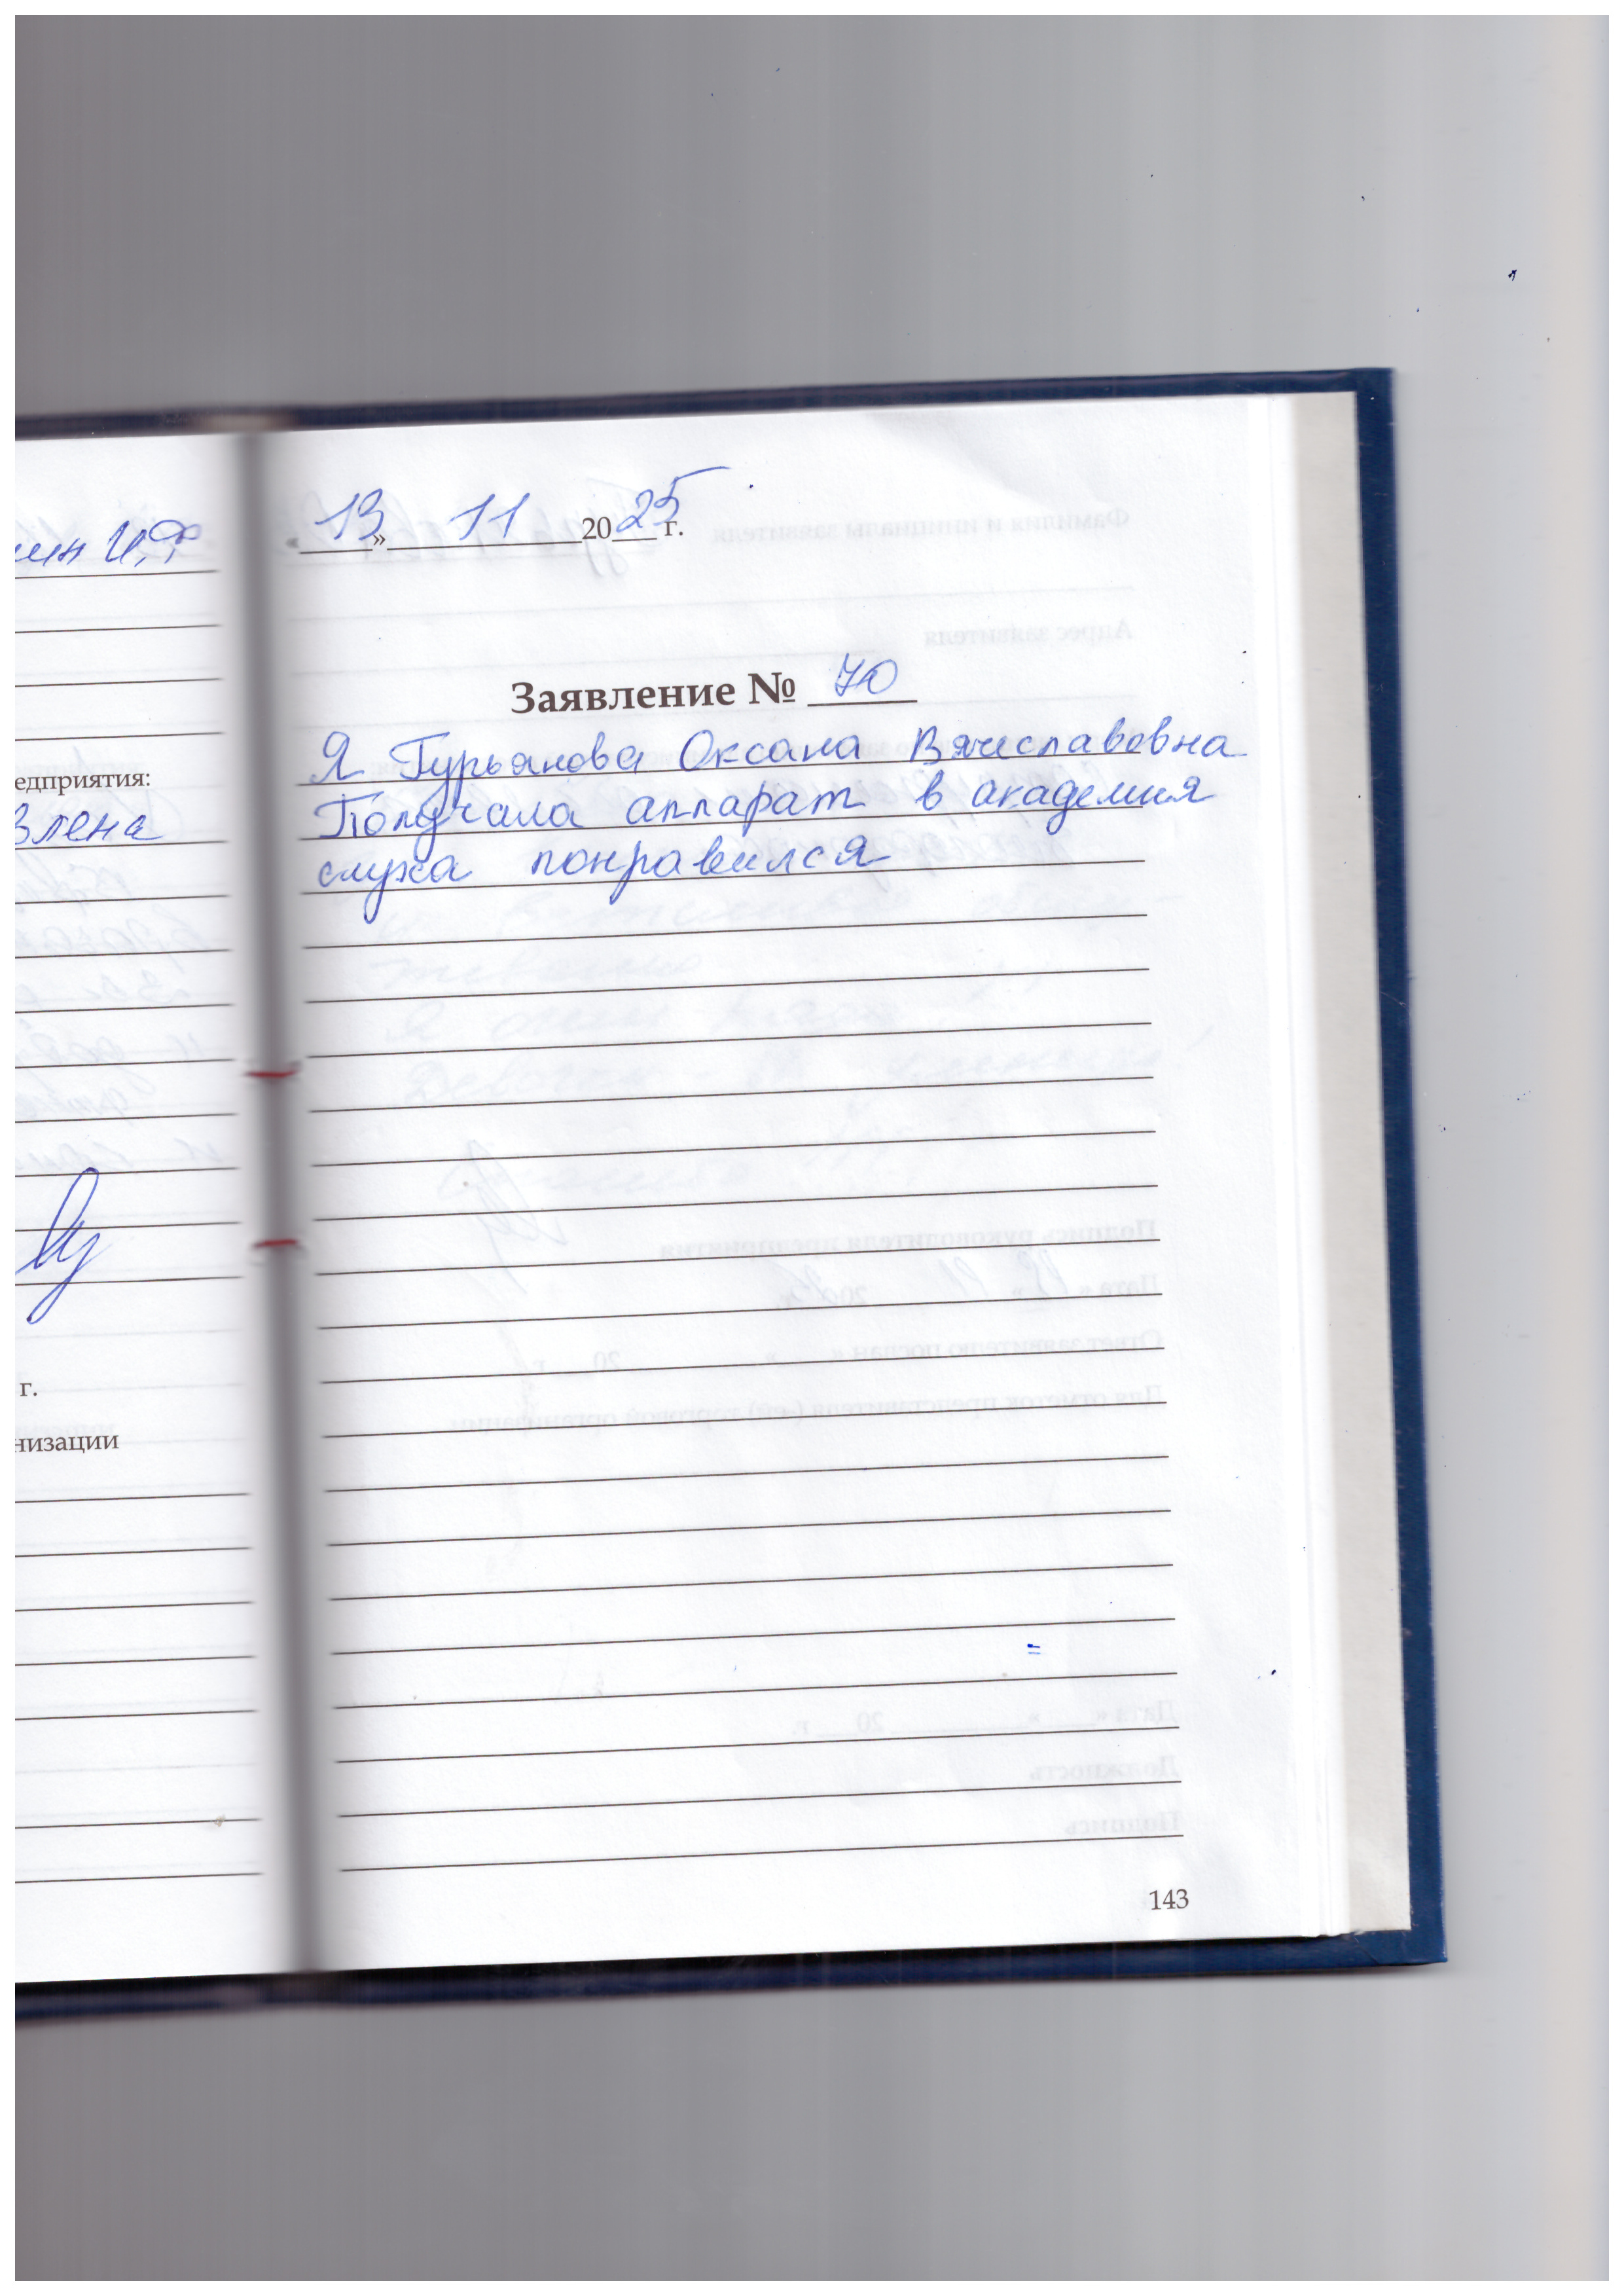 И.Ф.
едприятия:
влена
г.
низации
«13» 11 2025 г.
Заявление № 70
Я Гурьянова Оксана Вячеславовна
Получала аппарат в академия
слуха понравился
143